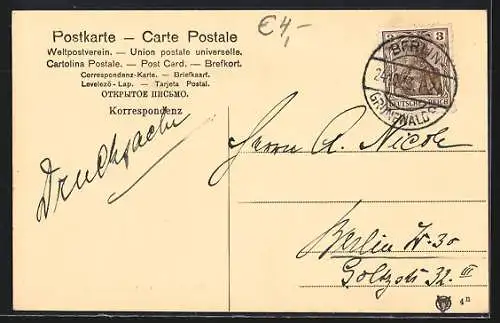 Postkarte — Carte Postale
Weltpostverein. — Union postale universelle.
Cartolina Postale. — Post Card. — Brefkort.
Correspondenz-Karte. — Briefkaart.
Levelező-Lap. — Tarjeta Postal.
ОТКРЫТОЕ ПИСЬМО.
Korrespondenz
€4,-
3
DEUTSCHES REICH
BERLIN
GRUNEWALD
Drucksache
Herrn A. Nicole
Berlin W. 30
Goltzstr 32. III
4n